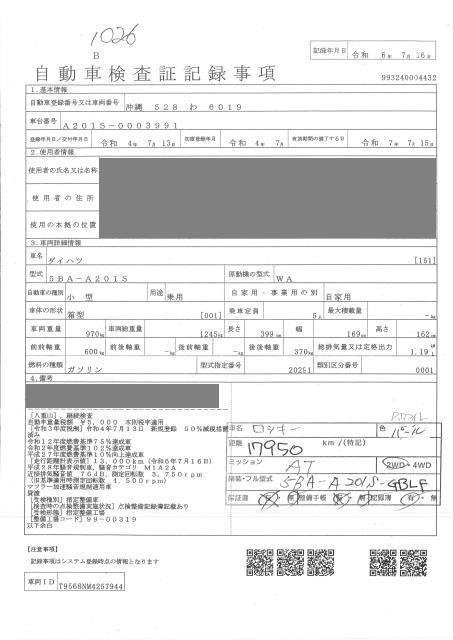 1026
B
記録年月日 令和 6年 7月 16日
自動車検査証記録事項
993240004432
1.基本情報
自動車登録番号又は車両番号 沖縄 528 わ 6019
車台番号
A201S-0003991
登録年月日/交付年月日 令和 4年 7月 13日 初度登録年月 令和 4年 7月 有効期間の満了する日 令和 7年 7月 15日
2.使用者情報
使用者の氏名又は名称
使用者の住所
使用の本拠の位置
3.車両詳細情報
車名
ダイハツ [151]
型式 5BA-A201S 原動機の型式 WA
自動車の種別 小型 用途 乗用 自家用・事業用の別 自家用
車体の形状 箱型 [001] 乗車定員 5人 最大積載量 -kg
車両重量 970kg 車両総重量 1245kg 長さ 399cm 幅 169cm 高さ 162cm
前前軸重 600kg 前後軸重 -kg 後前軸重 -kg 後後軸重 370kg 総排気量又は定格出力 1.19L
燃料の種類 ガソリン 型式指定番号 20251 類別区分番号 0001
4.備考
[八重山], 継続検査
自動車重量税額 ¥5,000 本則税率適用
[令和3年度税制] 令和4年7月13日 新規登録 50%減税措置済み
令和12年度燃費基準75%達成車
令和2年度燃費基準102%達成車
平成27年度燃費基準10%向上達成車
[走行距離計表示値] 13,000km (令和6年7月16日)
平成28年騒音規制車, 騒音カテゴリ M1A2A
近接排気騒音値 76dB, 測定回転数 3,750rpm
(旧基準適用時測定回転数 4,500rpm)
マフラー加速騒音規制適用車
貸渡
[受検種別] 指定整備車
[検査時の点検整備実施状況] 点検整備記録簿記載あり
[受検形態] 指定整備工場
[整備工場コード] 99-00319
以下余白
車名 ロッキー 色 パール
距離 17950 km/(特記)
ミッション AT 2WD・4WD
類別・フル型式 5BA-A201S-GBLF
保証書 有・無 整備手帳 有・無 記録簿 有・無
【注意事項】
記録事項はシステム登録時点の情報となります
車両ID T9568NM4257944